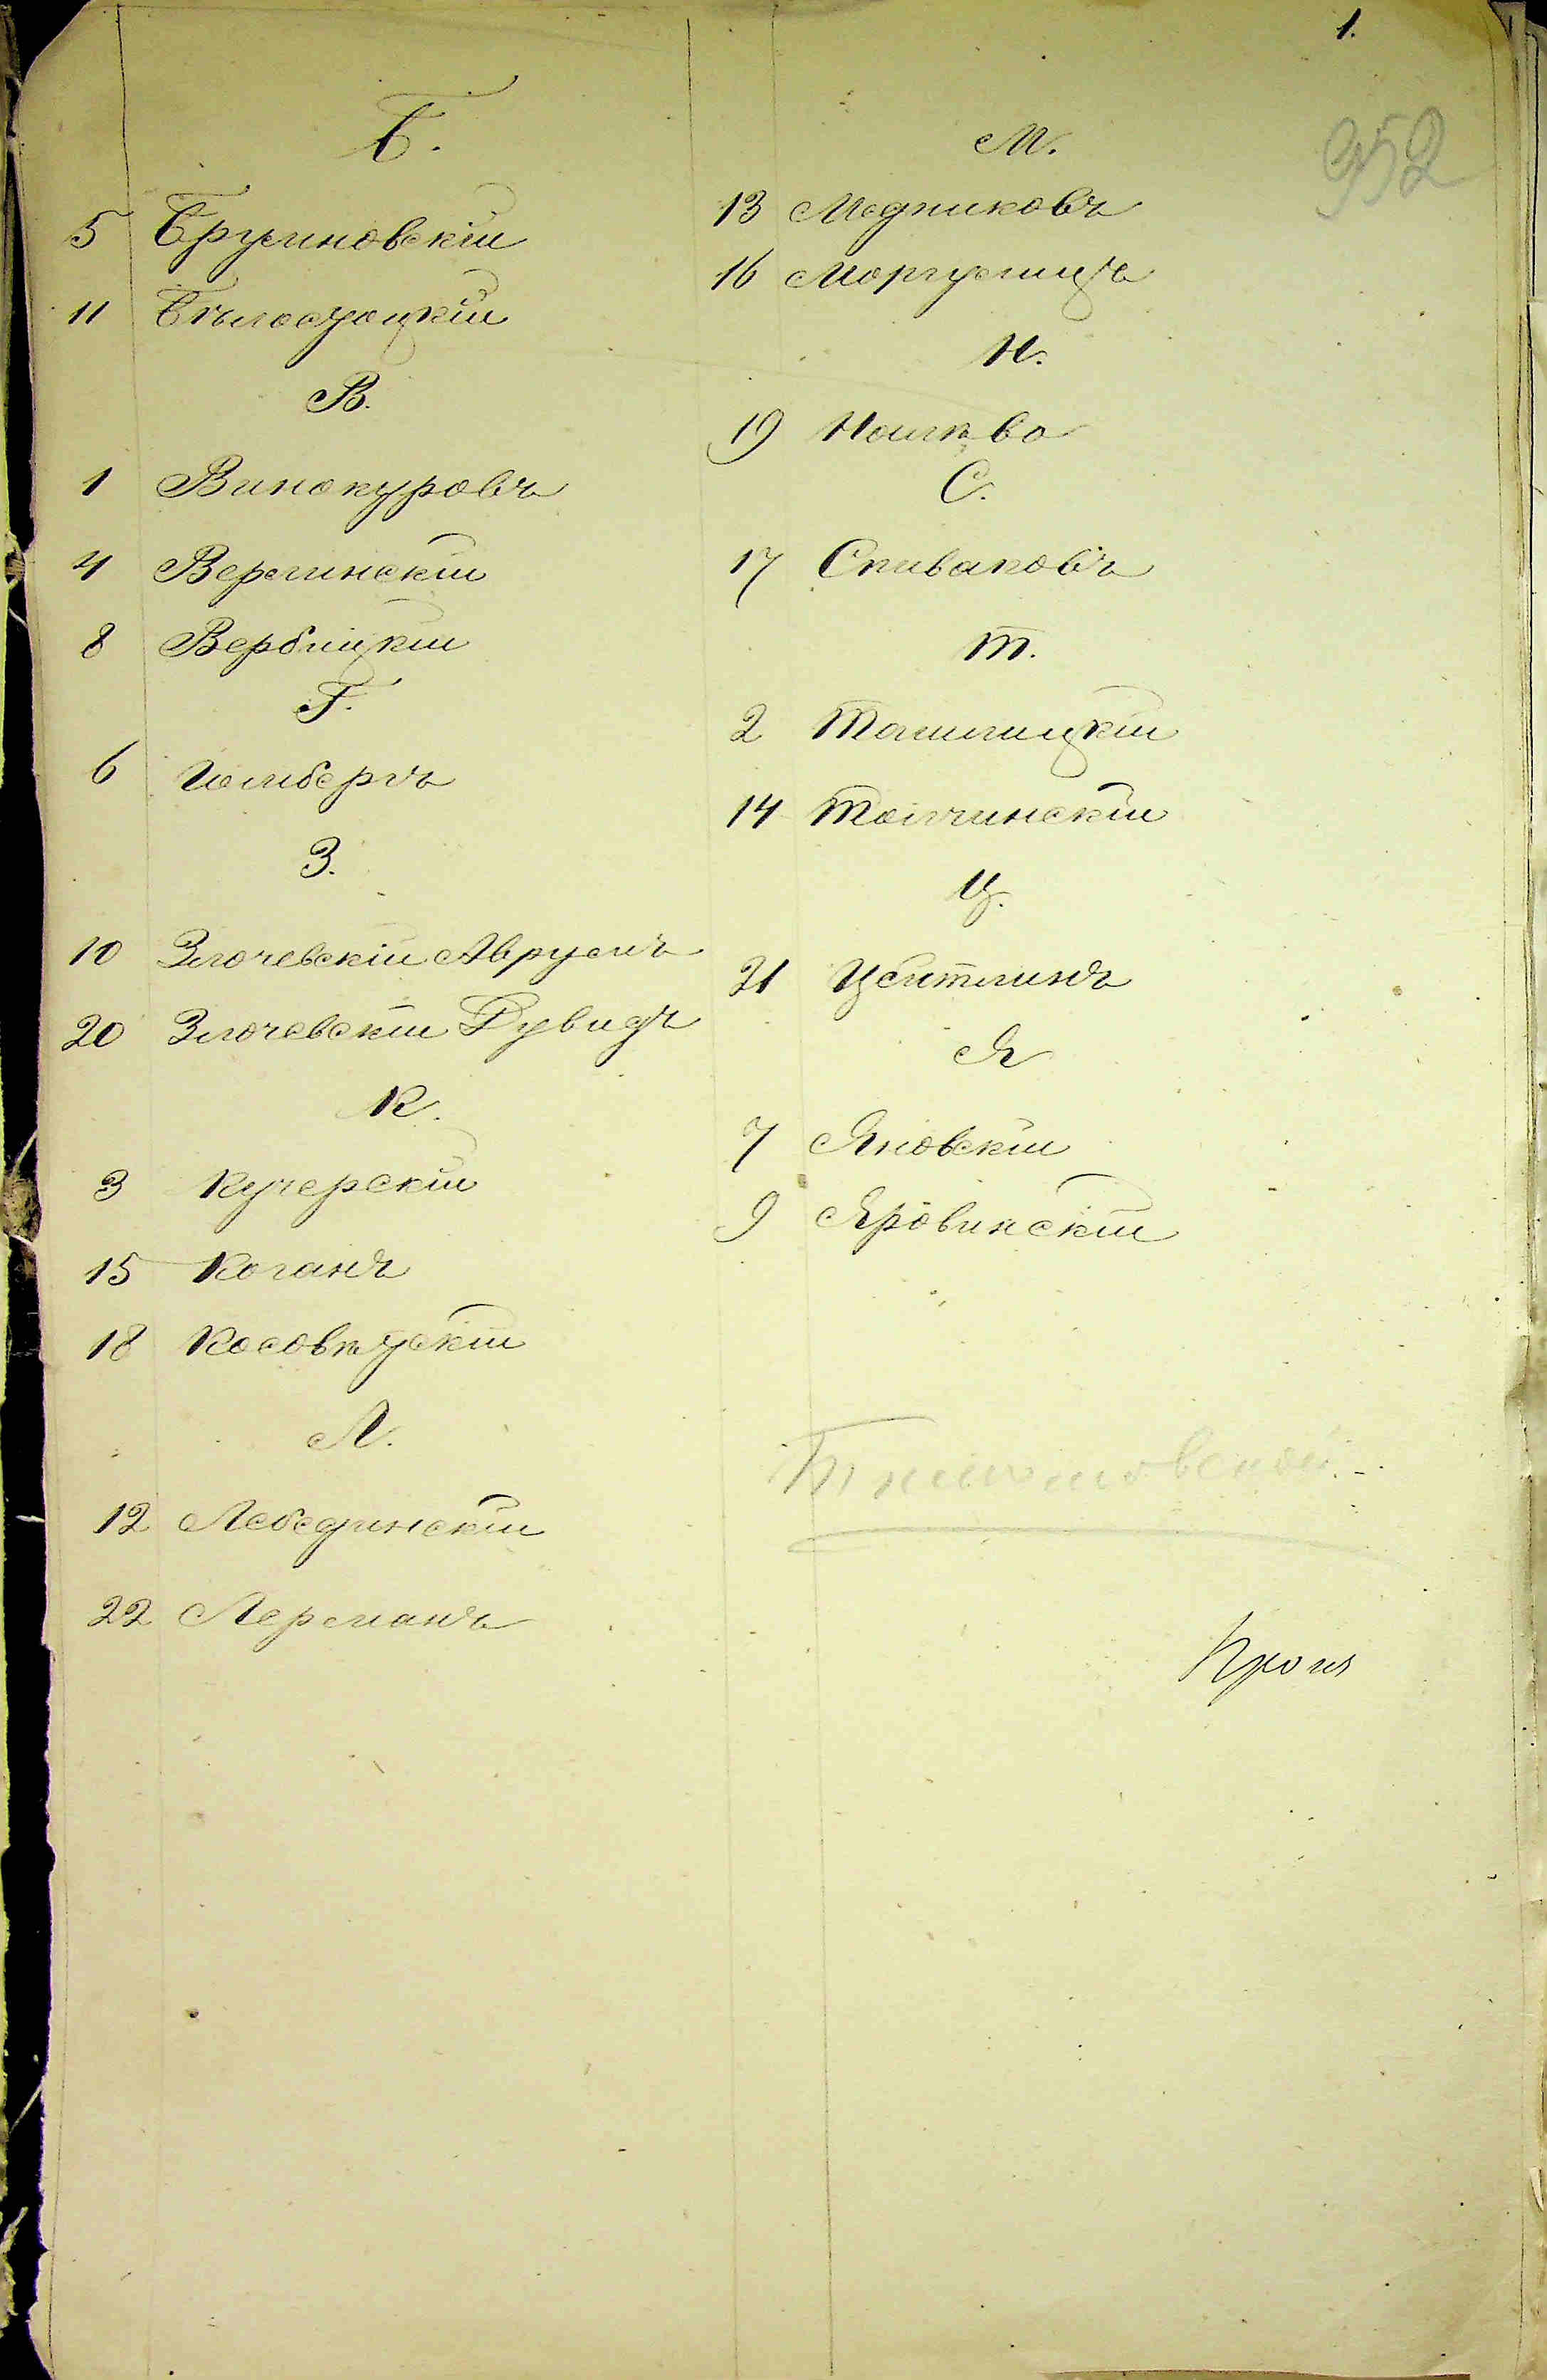 1.
952
Б.
5 Брусиловскій
11 Бѣлоцерковскій
В.
1 Винокуровъ
4 Веременскій
8 Вербицкій
Г.
6 Гольбергъ
З.
10 Злочевскій Аврумъ
20 Злочевскій Рувидъ
К.
3 Кучерскій
15 Коганъ
18 Косовскій
Л.
12 Лебединскій
22 Лерманъ
М.
13 Медниковъ
16 Моргулицъ
Н.
19
С.
17 Спиваковъ
Т.
2 Ташлицкій
14 Толчинскій
Ц.
21 Цейтлинъ
Я
7 Яновскій
9 Яровинскій